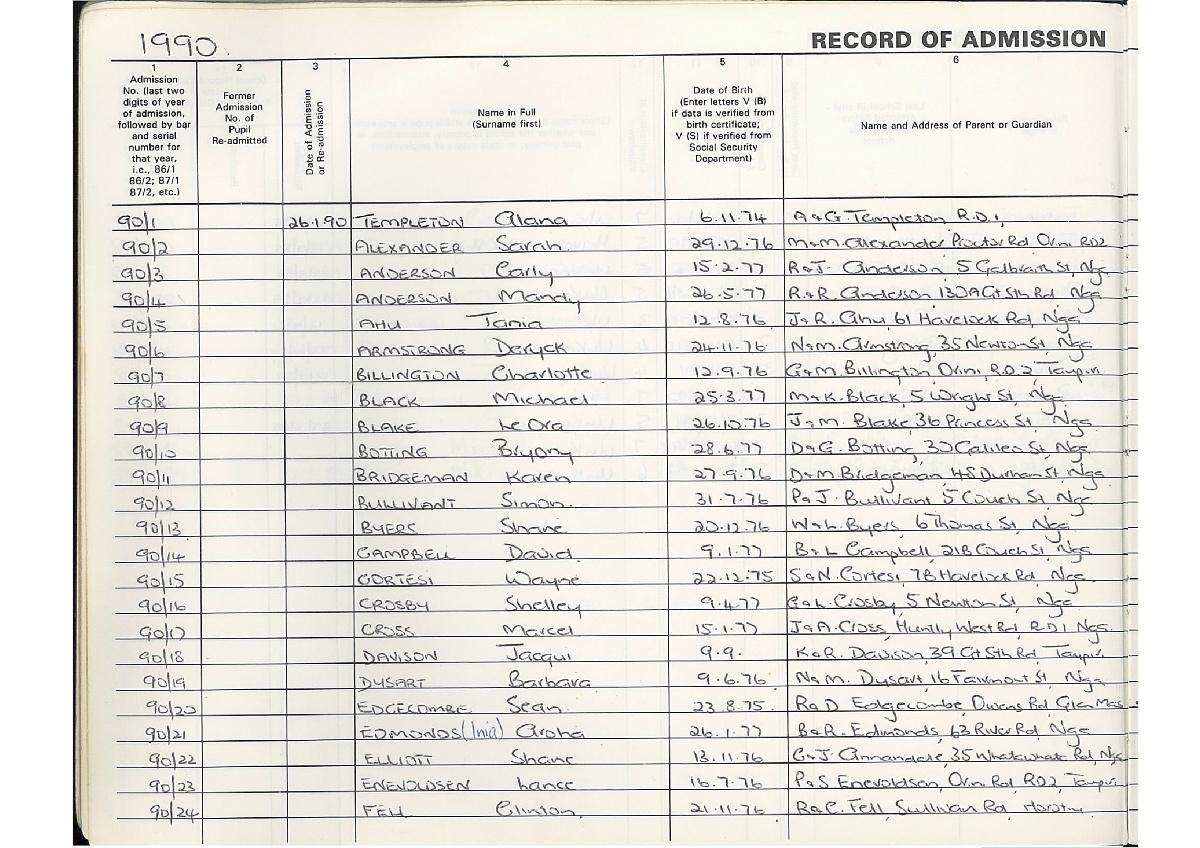 1990.
RECORD OF ADMISSION
1 2 3 4 5 6
Admission No. (last two digits of year of admission, followed by bar and serial number for that year, i.e., 86/1 86/2; 87/1 87/2, etc.)
Former Admission No. of Pupil Re-admitted
Date of Admission or Re-admission
Name in Full (Surname first)
Date of Birth (Enter letters V (B) if data is verified from birth certificate; V (S) if verified from Social Security Department)
Name and Address of Parent or Guardian
90/1 26.1.90 TEMPLETON Alana 6.11.74 A & G. Templeton R.D.1,
90/2 ALEXANDER Sarah 29.12.76 M & M. Alexander Proctor Rd Orini RD2
90/3 ANDERSON Carly 15.2.77 R & J. Anderson 5 Galbraith St, Nga
90/4 ANDERSON Mandy 26.5.77 R. & R. Anderson 130A Gt Sth Rd Nga
90/5 AHU Tania 12.8.76 J & R. Ahu, 61 Havelock Rd, Nga
90/6 ARMSTRONG Deryck 24.11.76 N & M. Armstrong, 35 Newton St, Nga
90/7 BILLINGTON Charlotte 12.9.76 G & M. Billington Orini, R.D.2, Taupiri
90/8 BLACK Michael 25.3.77 M & K. Black, 5 Wright St, Nga
90/9 BLAKE LeOra 26.10.76 J & M. Blake, 36 Princess St, Nga
90/10 BOTTING Bryony 28.6.77 D & G. Botting, 30 Galileo St, Nga
90/11 BRIDGEMAN Karen 27.9.76 D & M. Bridgeman, 48 Durham St, Nga
90/12 BULLIVANT Simon. 31.7.76 P & J. Bullivant 5 Couch St, Nga
90/13 BYERS Shane 20.12.76 W & L. Byers, 6 Thomas St, Nga
90/14 CAMPBELL David 9.1.77 B & L Campbell, 21B Couch St, Nga
90/15 CORTESI Wayne 22.12.75 S & N. Cortesi, 7B Havelock Rd, Nga.
90/16 CROSBY Shelley 9.4.77 & L. Crosby, 5 Newton St, Nga
90/17 CROSS Marcel 15.1.77 J & A. Cross, Huntly West Rd, R.D.1 Nga.
90/18 DAVISON Jacqui 9.9. K & R. Davison, 39 Gt Sth Rd, Taupiri.
90/19 DYSART Barbara 9.6.76 N & M. Dysart, 16 St, Nga
90/20 EDGECOMBE Sean 23.8.75. R & D Edgecombe, Owens Rd, Glen
90/21 EDMONDS (Inia) Aroha 26.1.77 B & R. Edmonds, 63 River Rd, Nga
90/22 ELLIOTT Shane 13.11.76 & J. Annandale, 35 Whatawhata Rd, Nga
90/23 ENEVOLDSEN Lance 16.7.76 P & S Enevoldsen, Orini Rd, RD2, Taupiri
90/24 FELL Clinton. 21.11.76 R & C. Fell, Sullivan Rd,